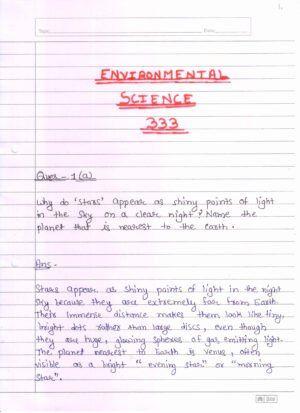 1.
Topic
Date
ENVIRONMENTAL
SCIENCE
333
Ques - 1 (a)
Why do 'stars' appear as shiny points of light
in the sky on a clear night? Name the
planet that is nearest to the earth.
Ans -
Stars appear as shiny points of light in the night
sky because they are extremely far from Earth.
Their immense distance makes them look like tiny,
bright dots rather than large discs, even though
they are huge, glowing spheres of gas emitting light.
The planet nearest to Earth is Venus, often
visible as a bright "evening star" or "morning
star".